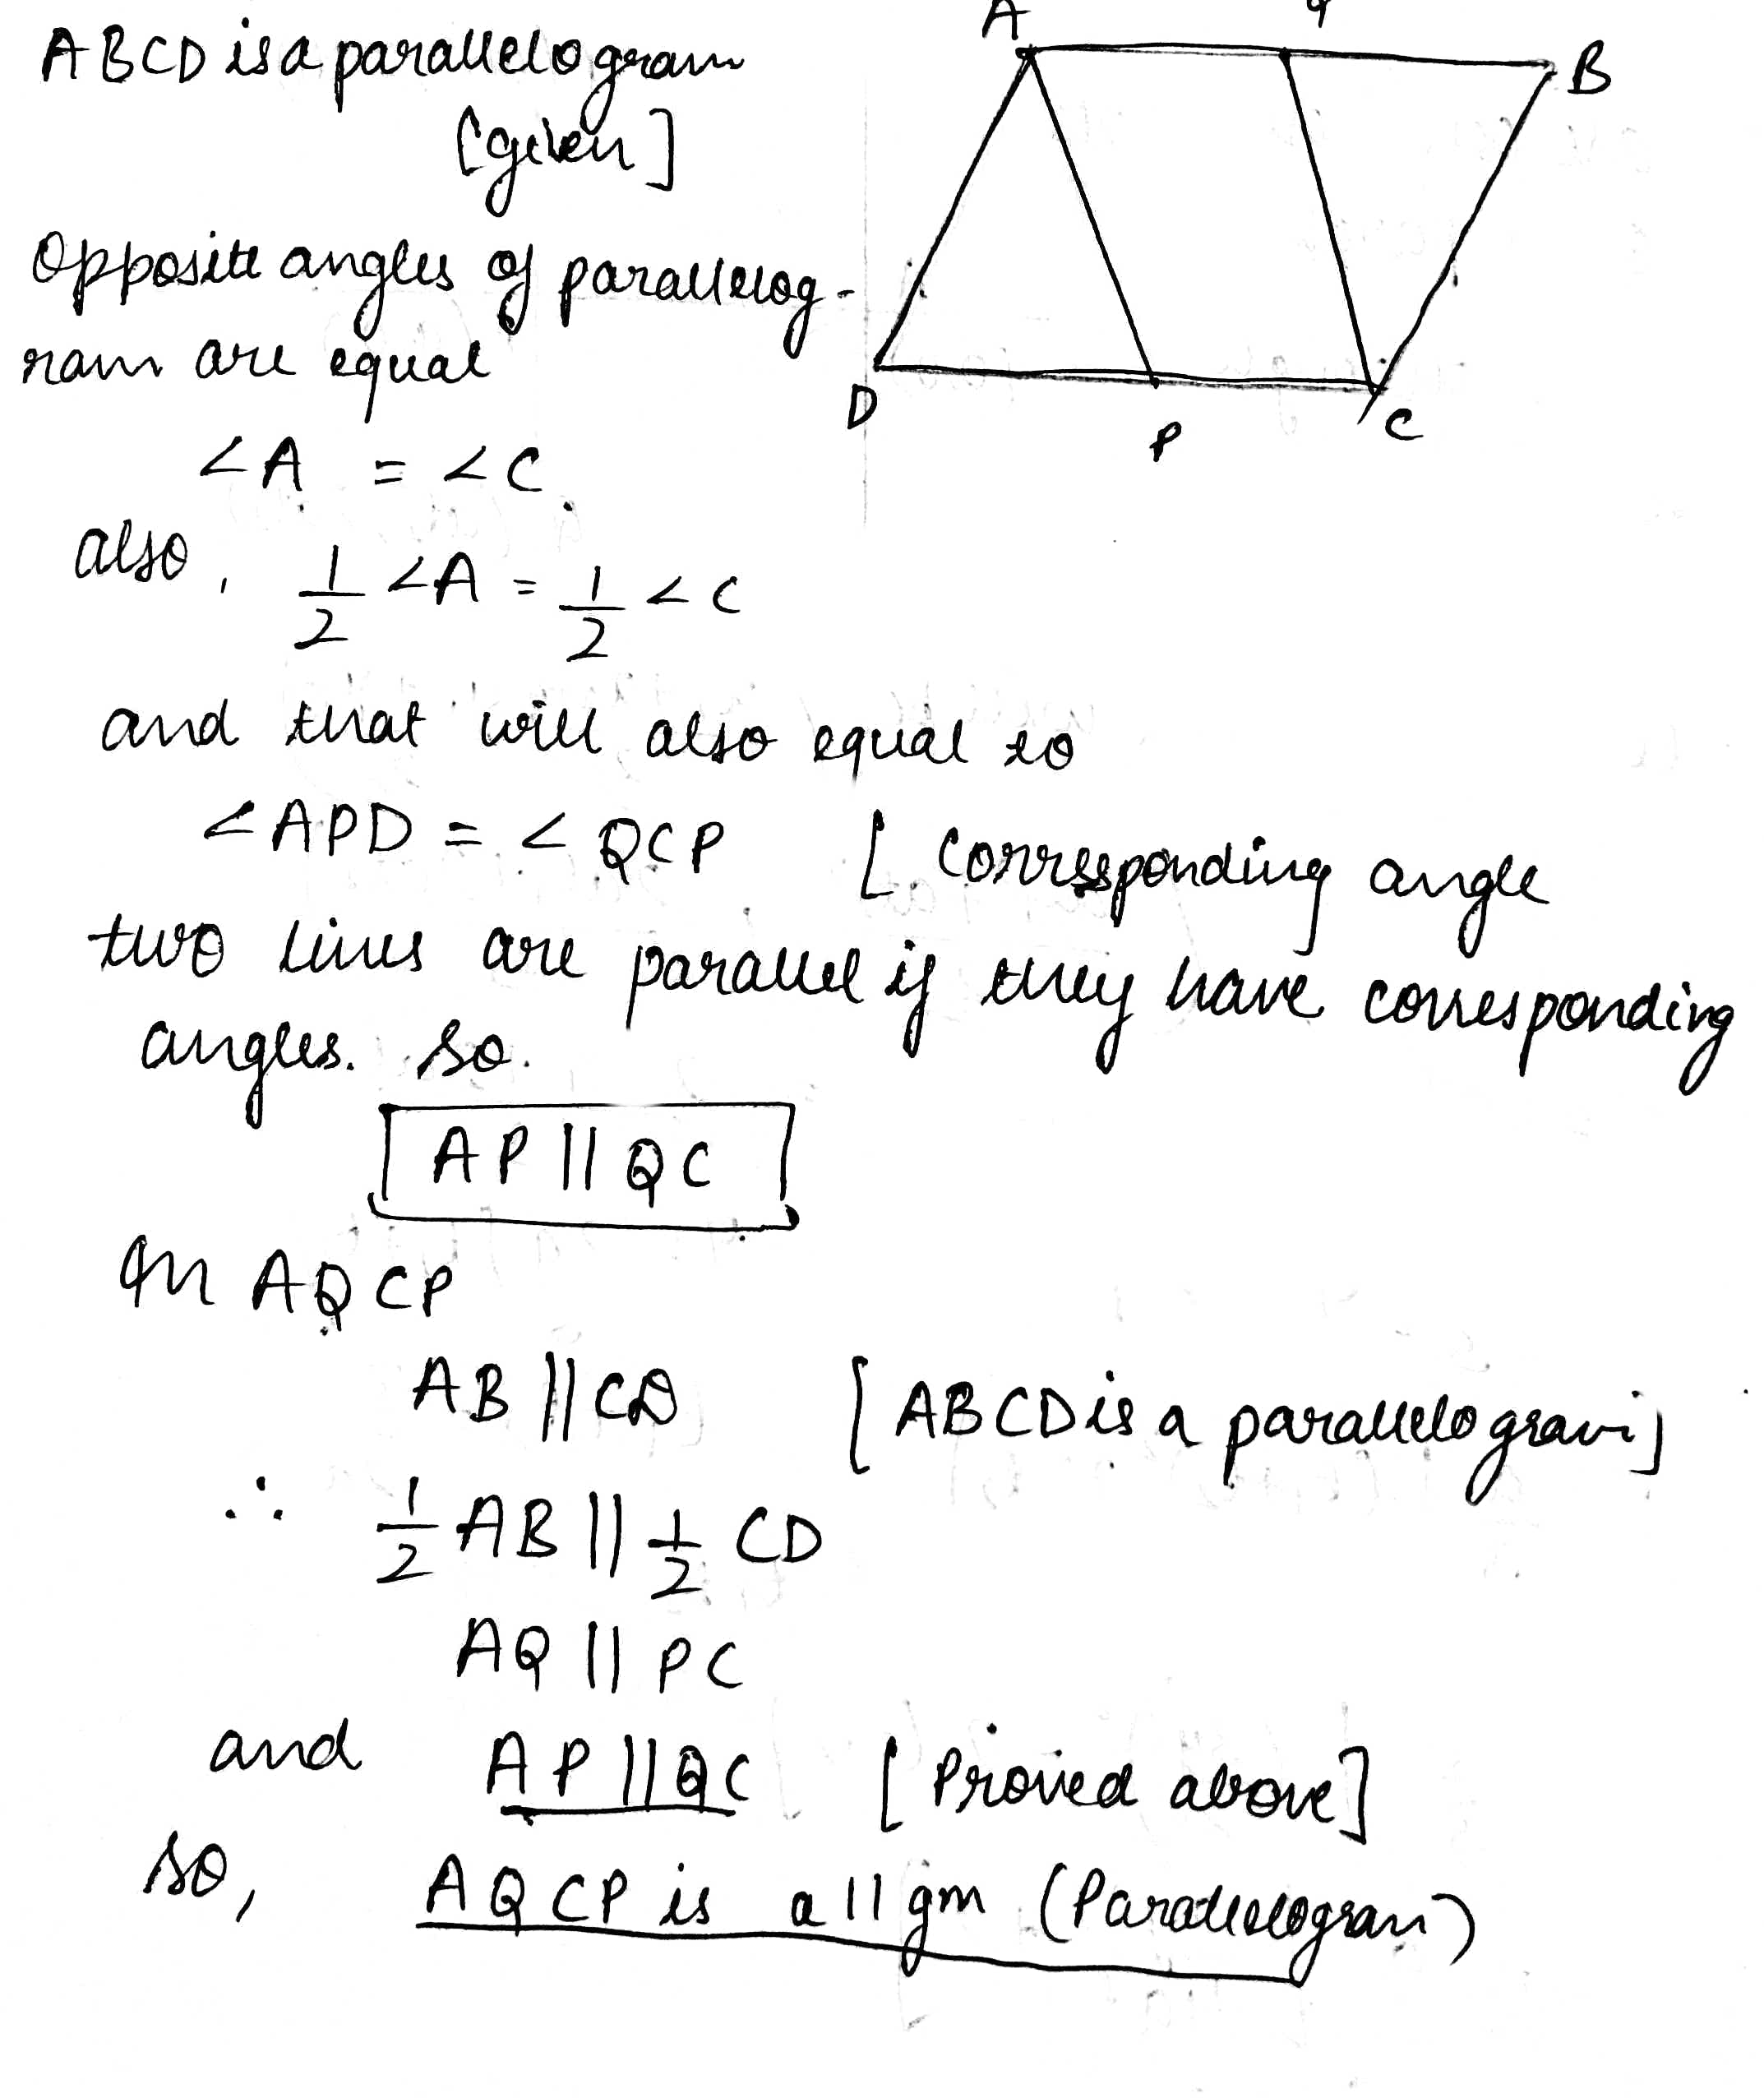 ABCD is a parallelogram
[given]
A
B
D
P
C
Opposite angles of parallelog-
ram are equal
<A = <C
also, 1/2 <A = 1/2 <C
and that will also equal to
<APD = <QCP [ Corresponding angle
two lines are parallel if they have corresponding
angles. so.
AP || QC
In AQCP
AB || CD [ABCD is a parallelogram]
∴ 1/2 AB || 1/2 CD
AQ || PC
and AP || QC [Proved above]
so, AQCP is a ||gm (Parallelogram)